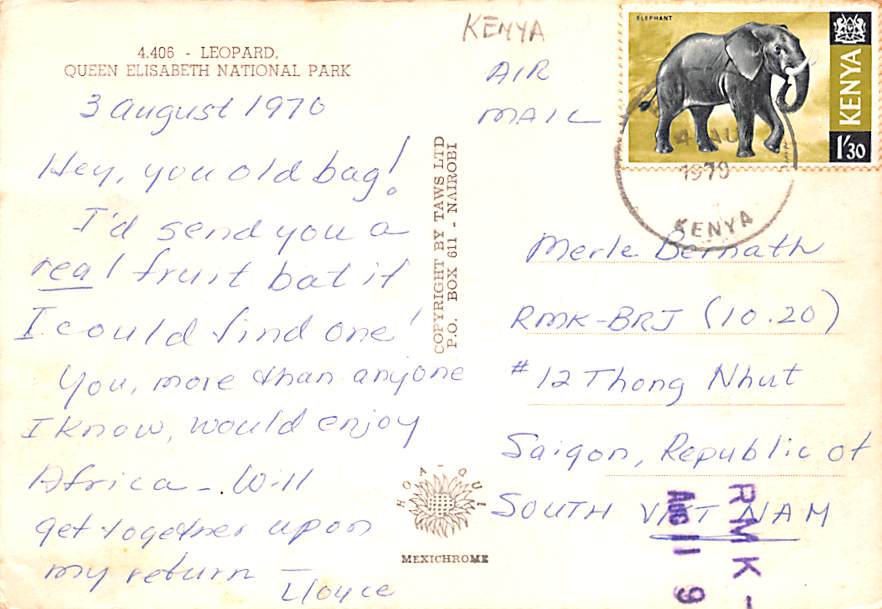 4.406 - LEOPARD.
QUEEN ELISABETH NATIONAL PARK
3 august 1970
Hey, you old bag!
I'd send you a
real fruit bat if
I could find one!
You, more than anyone
I know, would enjoy
Africa - Will
get together upon
my return -
Lloyce
COPYRIGHT BY TAWS LTD
P.O. BOX 611 - NAIROBI
HOA-QUI
MEXICHROME
KENYA
AIR
MAIL
ELEPHANT
KENYA
1/30
4 AU
1970
KENYA
Merle Bernath
RMK-BRJ (10.20)
#12 Thong Nhut
Saigon, Republic of
SOUTH VIET NAM
RMK-
AUG 11 9